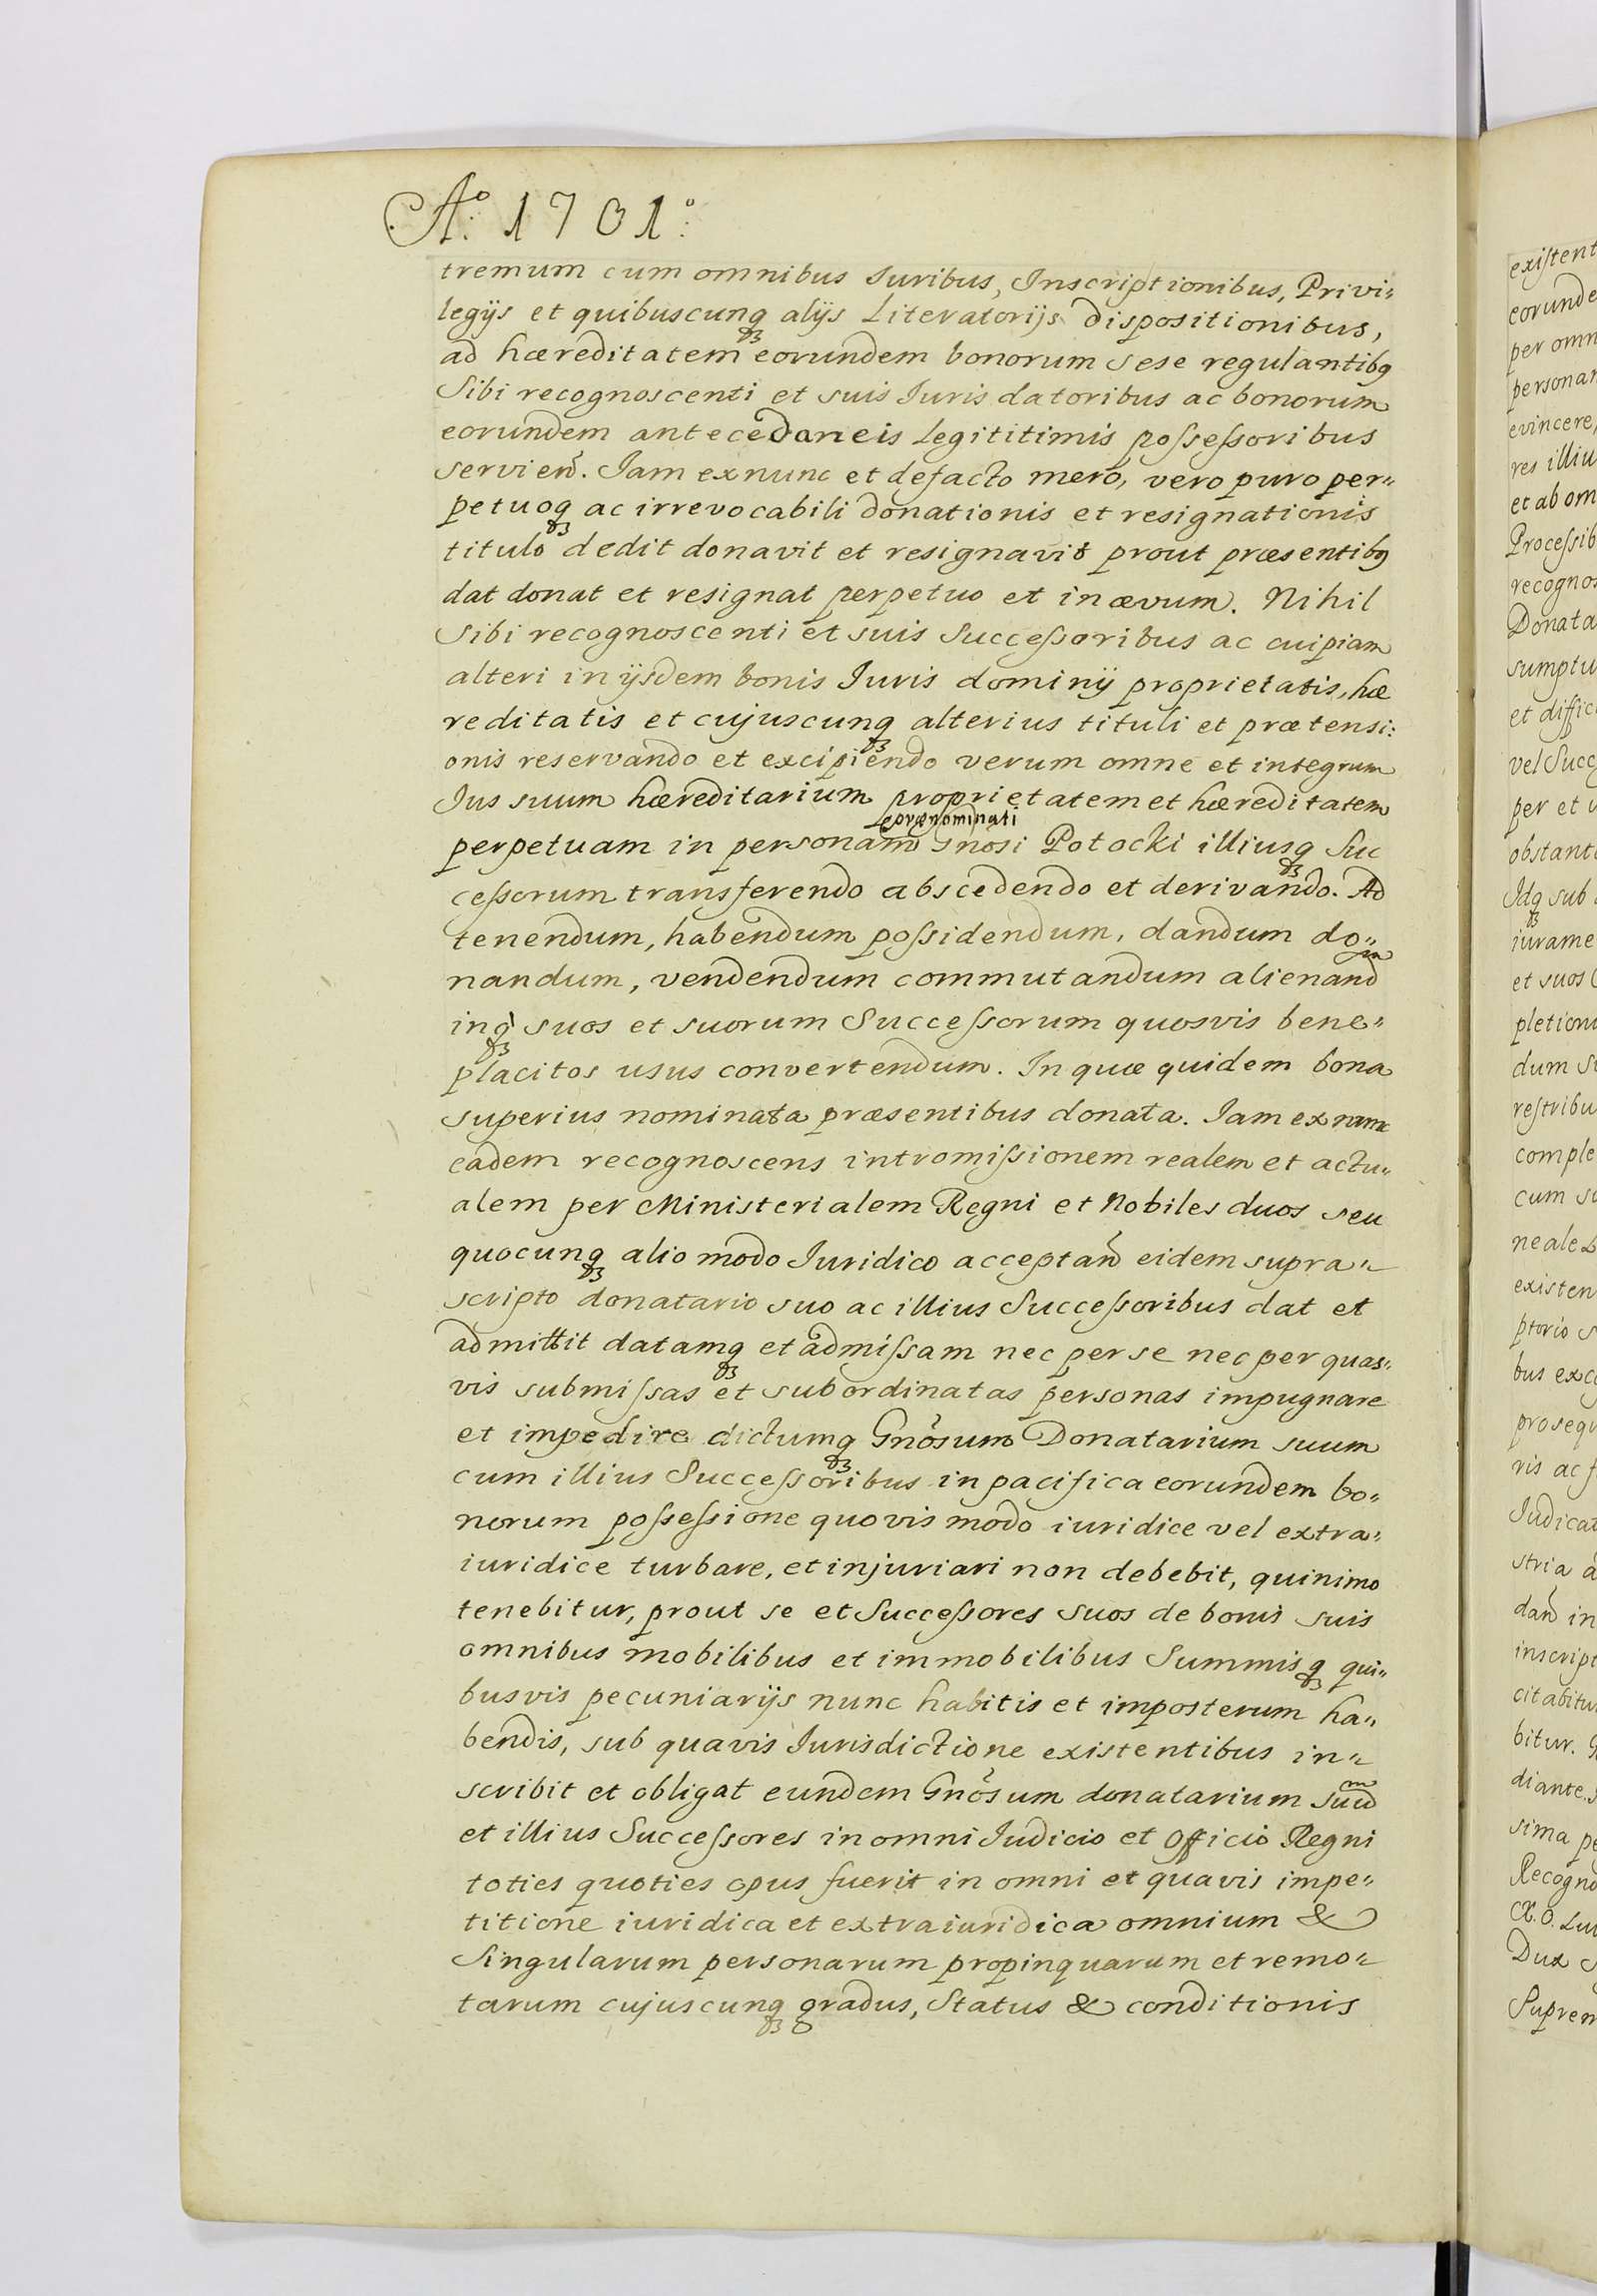 Aº. 1701º.
tremum cum omnibus Juribus, Inscriptionibus, Privi„
legijs et quibuscunq₃ alijs Literatorijs dispositionibus,
ad hæreditatem eorundem bonorum sese regulantibꝰ
Sibi recognoscenti et suis Juris datoribus ac bonorum
eorundem antecedaneis Legititimis poſseſsoribus
servieñ. Jam exnunc et defacto mero, vero puro per„
petuoq₃ ac irrevocabili donationis et resignationis
titulo dedit donavit et resignavit prout præsentibꝰ
dat donat et resignat perpetuo et in ævum. Nihil
Sibi recognoscenti et suis Succeſsoribus ac cuipiam
alteri in ijsdem bonis Juris dominij proprietatis, hæ
reditatis et cujuscunq₃ alterius tituli et prætensi:
onis reservando et excipiendo verum omne et integrum
Jus suum hæreditarium proprietatem et hæreditatem
prænominati
perpetuam in personam Gnosi Potocki illiusq₃ Suc
ceſsorum transferendo abscedendo et derivando. Ad
tenendum, habendum poſsidendum, dandum do„
nandum, vendendum commutandum alienand̄ᵐ
inq₃ suos et suorum Succeſsorum quosvis bene„
placitos usus convertendum. In quæ quidem bona
superius nominata præsentibus donata. Jam exnunc
eadem recognoscens intromiſsionem realem et actu„
alem per Ministerialem Regni et Nobiles duos seu
quocunq₃ alio modo Juridico acceptañ eidem supra„
scripto donatario suo ac illius Succeſsoribus dat et
admittit datamq₃ et admiſsam nec per se nec per quas„
vis submiſsas et subordinatas personas impugnare
et impedire dictumq₃ Gnōsum Donatarium suum
cum illius Succeſsoribus in pacifica eorundem bo„
norum poſseſsione quovis modo iuridice vel extra„
iuridice turbare, et injuriari non debebit, quinimo
tenebitur, prout se et Succeſsores suos de bonis suis
omnibus mobilibus et immobilibus Summisq₃ qui„
busvis pecuniarijs nunc habitis et imposterum ha„
bendis, sub quavis Jurisdictione existentibus in„
scribit et obligat eundem Gnōsum donatarium Suūᵐ
et illius Succeſsores in omni Judicio et Officio Regni
toties quoties opus fuerit in omni et quavis impe„
titione iuridica et extraiuridica omnium &
Singularum personarum propinquarum et remo„
tarum cujuscunq₃ gradus, Status & conditionis
existent
eorunde
per omn
personar
evincere,
res illiu
et ab om
Proceſsib
recognos
Donata
sumptu
et diffic
vel Succ
per et
obstant
Idq₃ sub
iurame
et suos
pletion
dum
restribu
comple
cum
neale
existen
ptorio
bus exc
prosequ
ris ac
Judicat
stria
dañ in
inscript
citabitur
bitur.
diante.
sima pe
Recogno
Dux
Suprem